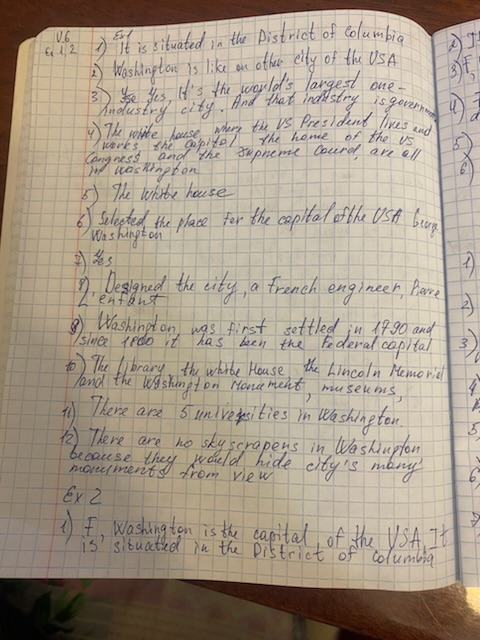 V.6
Ex 1, 2
Ex 1
1) It is situated in the District of Columbia
2) Washington is like on other city of the USA
3) Yes, It's the world's largest one-
industry city. And that industry is government
4) The white house, where the US President lives and
works the Capitol, the home of the US
Congress and the Supreme Courd, are all
in Washington
5) The white house
6) Selected the place for the capital of the USA George
Washington
7) Yes
8) Designed the city, a French engineer, Pierre
L enfant
9) Washington was first settled in 1790 and
since 1800 it has been the Federal capital
10) The Library, the white House the Lincoln Memorial
and the Washington Monument, museums,
11) There are 5 universities in Washington.
12) There are no skyscrapens in Washington
because they would hide city's many
monuments from view
Ex 2
1) F, Washington is the capital of the USA. It
is situated in the District of Columbia
2)
3) F,
4)
5)
6)
1)
2)
3)
4
5
6)